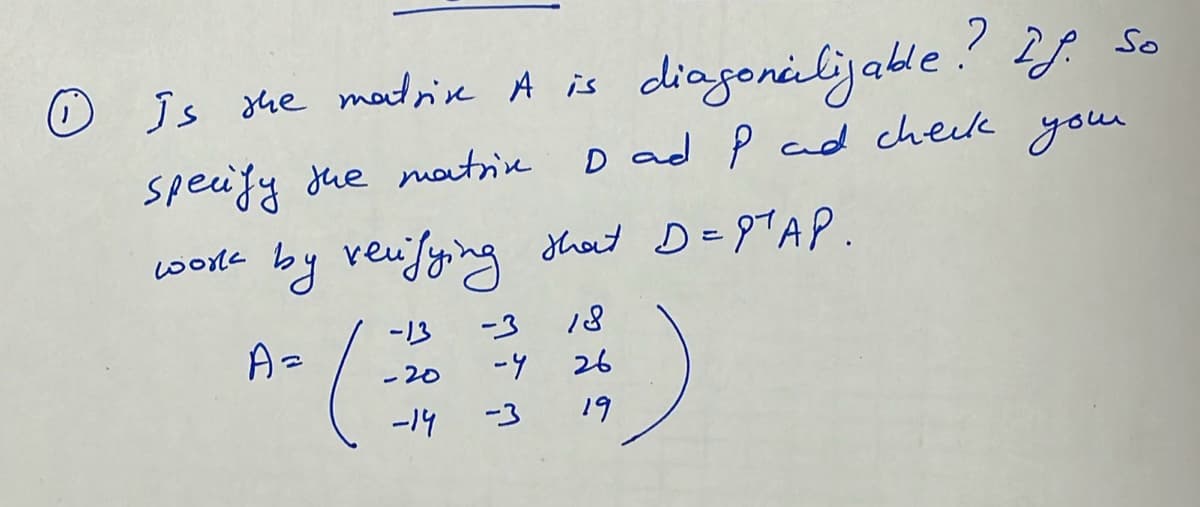 ① Is the matrix A is diagonalizable? If so
specify the matrix D ad P ad check your
work by verifying that D = P⁻¹AP.
A = ( -13 -3 18
-20 -4 26
-14 -3 19 )